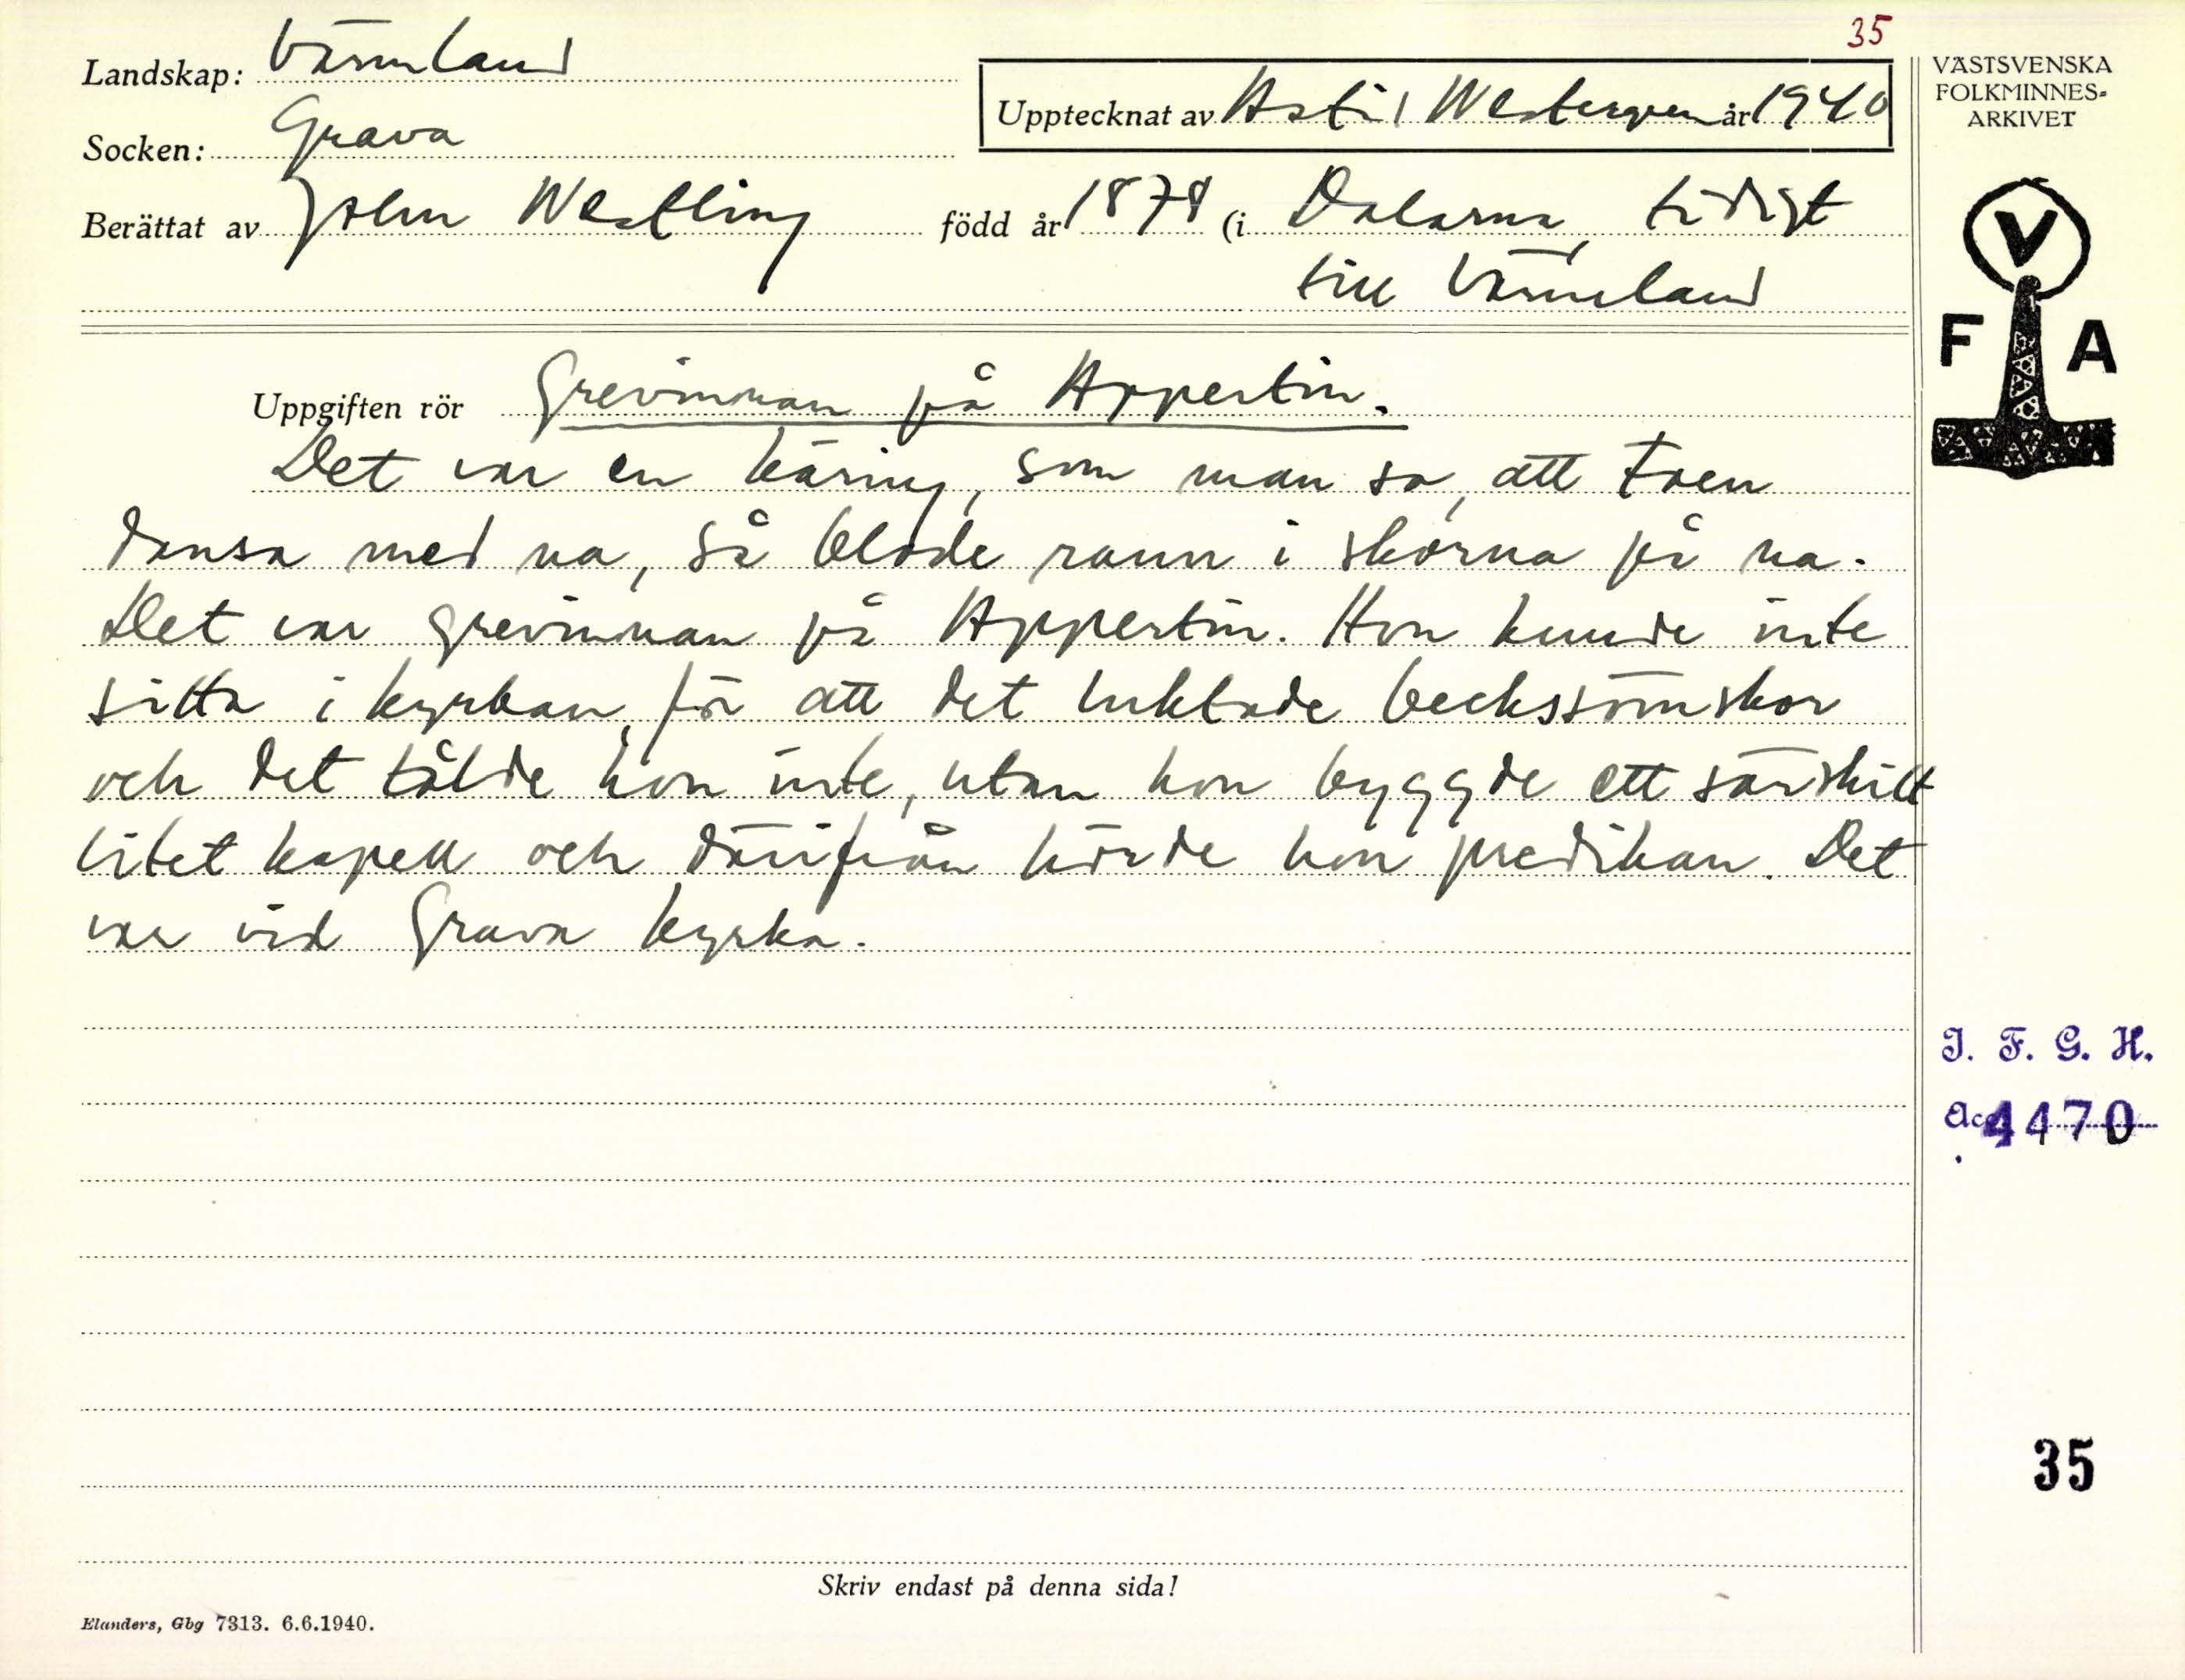 35
Landskap: Värmland
Socken: Grava
Upptecknat av Astrid Westergren år 1940
Berättat av John Westling född år 1878 (i Dalarna, tidigt
till Värmland
VÄSTSVENSKA
FOLKMINNES-
ARKIVET
V
F A
Uppgiften rör Grevinnan på Appertin.
Det var en käring, som man sa, att faen
dansa med na, så blode rann i skorna på na.
Det var grevinnan på Appertin. Hon kunde inte
sitta i kyrkan, för att det luktade beckssömskor
och det tålde hon inte, utan hon byggde ett särskilt
litet kapell och därifrån hörde hon predikan. Det
var vid Grava kyrka.
I. F. G. H.
Acc. 4470
35
Skriv endast på denna sida!
Elanders, Gbg 7313. 6.6.1940.